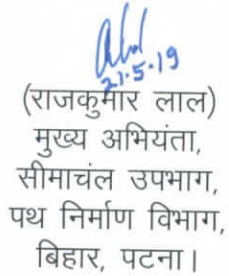 21.5.19
(राजकुमार लाल)
मुख्य अभियंता,
सीमाचंल उपभाग,
पथ निर्माण विभाग,
बिहार, पटना।